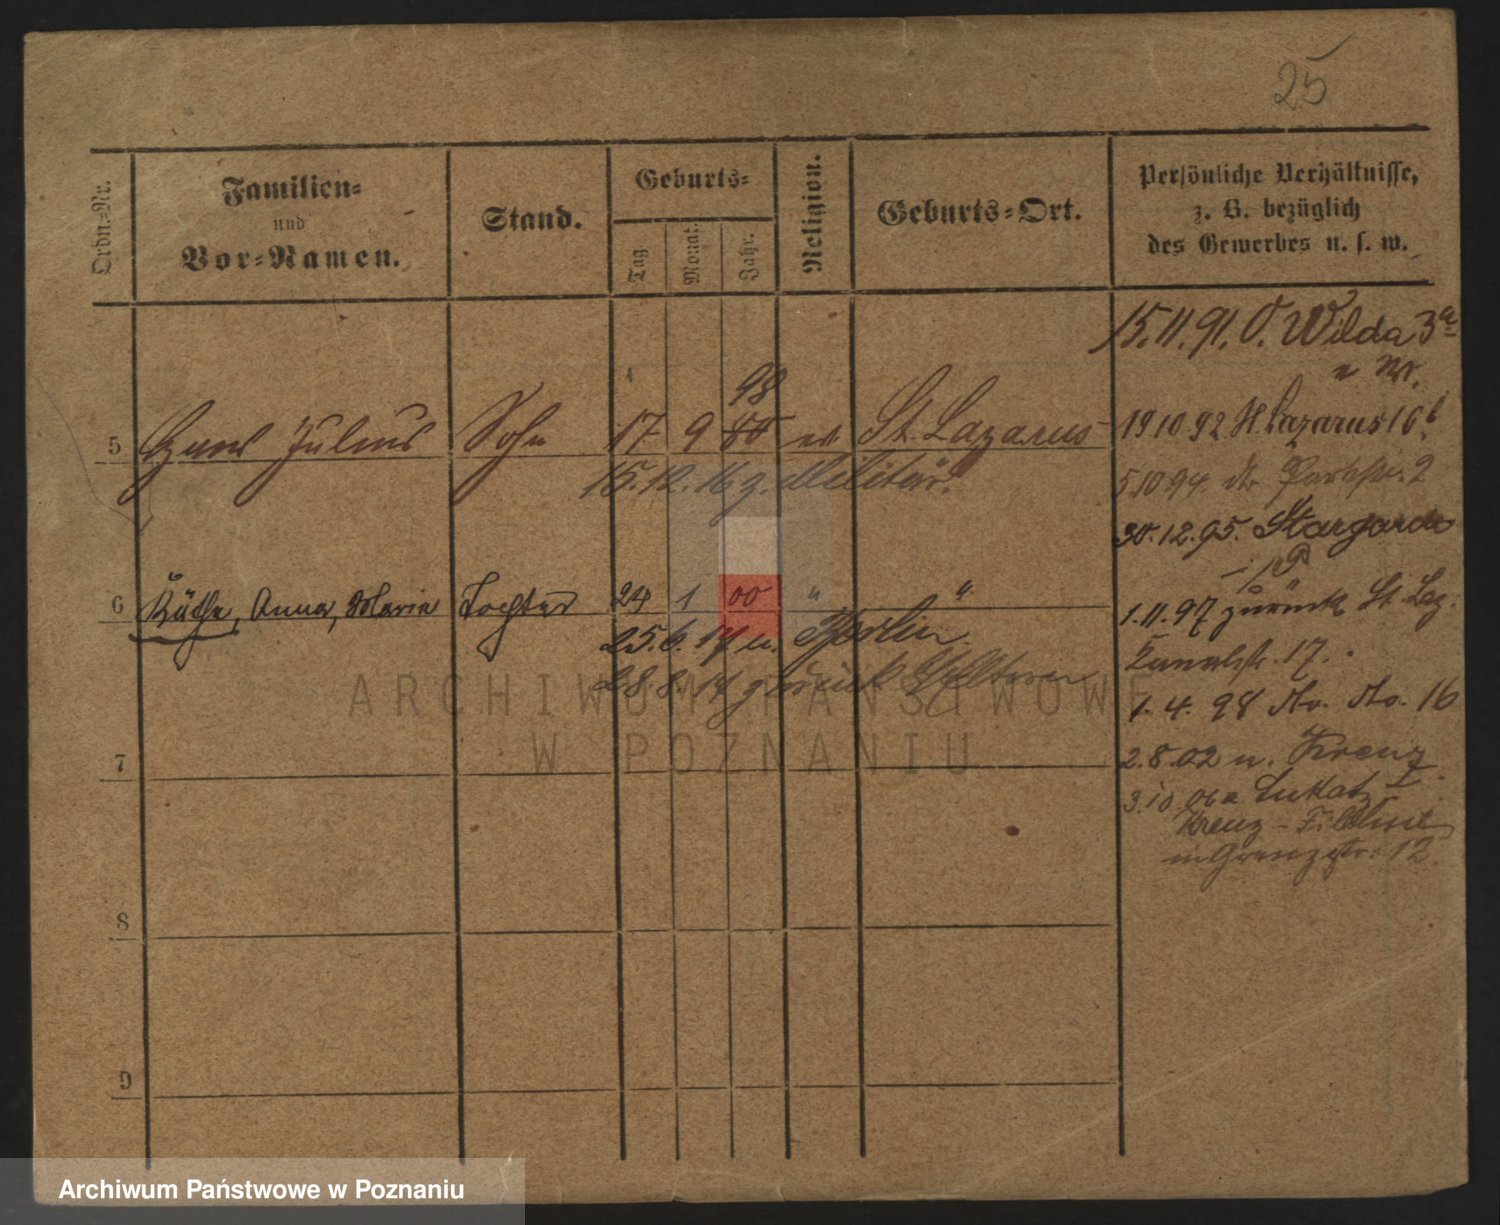 25
Ordn.=Nr.
Familien=
und
Vor=Namen.
Stand.
Geburts=
Tag
Monat.
Jahr.
Religion.
Geburts=Ort.
Persönliche Verhältnisse,
z. B. bezüglich
des Gewerbes u. s. w.
15.11.91. Wilda 3a
98
5 Hans Julius Sohn 17 9 ev St. Lazarus
15.12.16 z. Militär.
19 10 92 St. Lazarus 16
5.10 94. 2
30.12.95. Stargard
i/P
6 Käthe, Anna, Marie Tochter 24 1 00 " "
1.11.97 zurück St Laz.
25.6.17 n. Berlin
Kanalstr. 17.
28.8.17 zurück Eltern
1. 4. 98 16
7
2.8.02 n. Kreuz
3.10 Lukatz
Kreuz -
Grenzstr. 12
8
9
ARCHIWUM PAŃSTWOWE
W POZNANIU
Archiwum Państwowe w Poznaniu